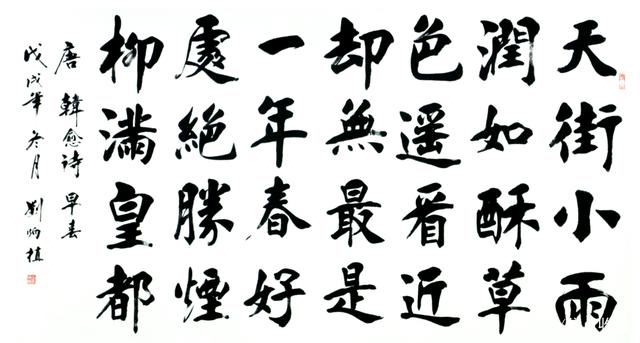 天街小雨
潤如酥草
色遥看近
却無最是
一年春好
處絶勝煙
柳滿皇都
唐 韓愈詩 早春
戊戌年冬月 劉炳植